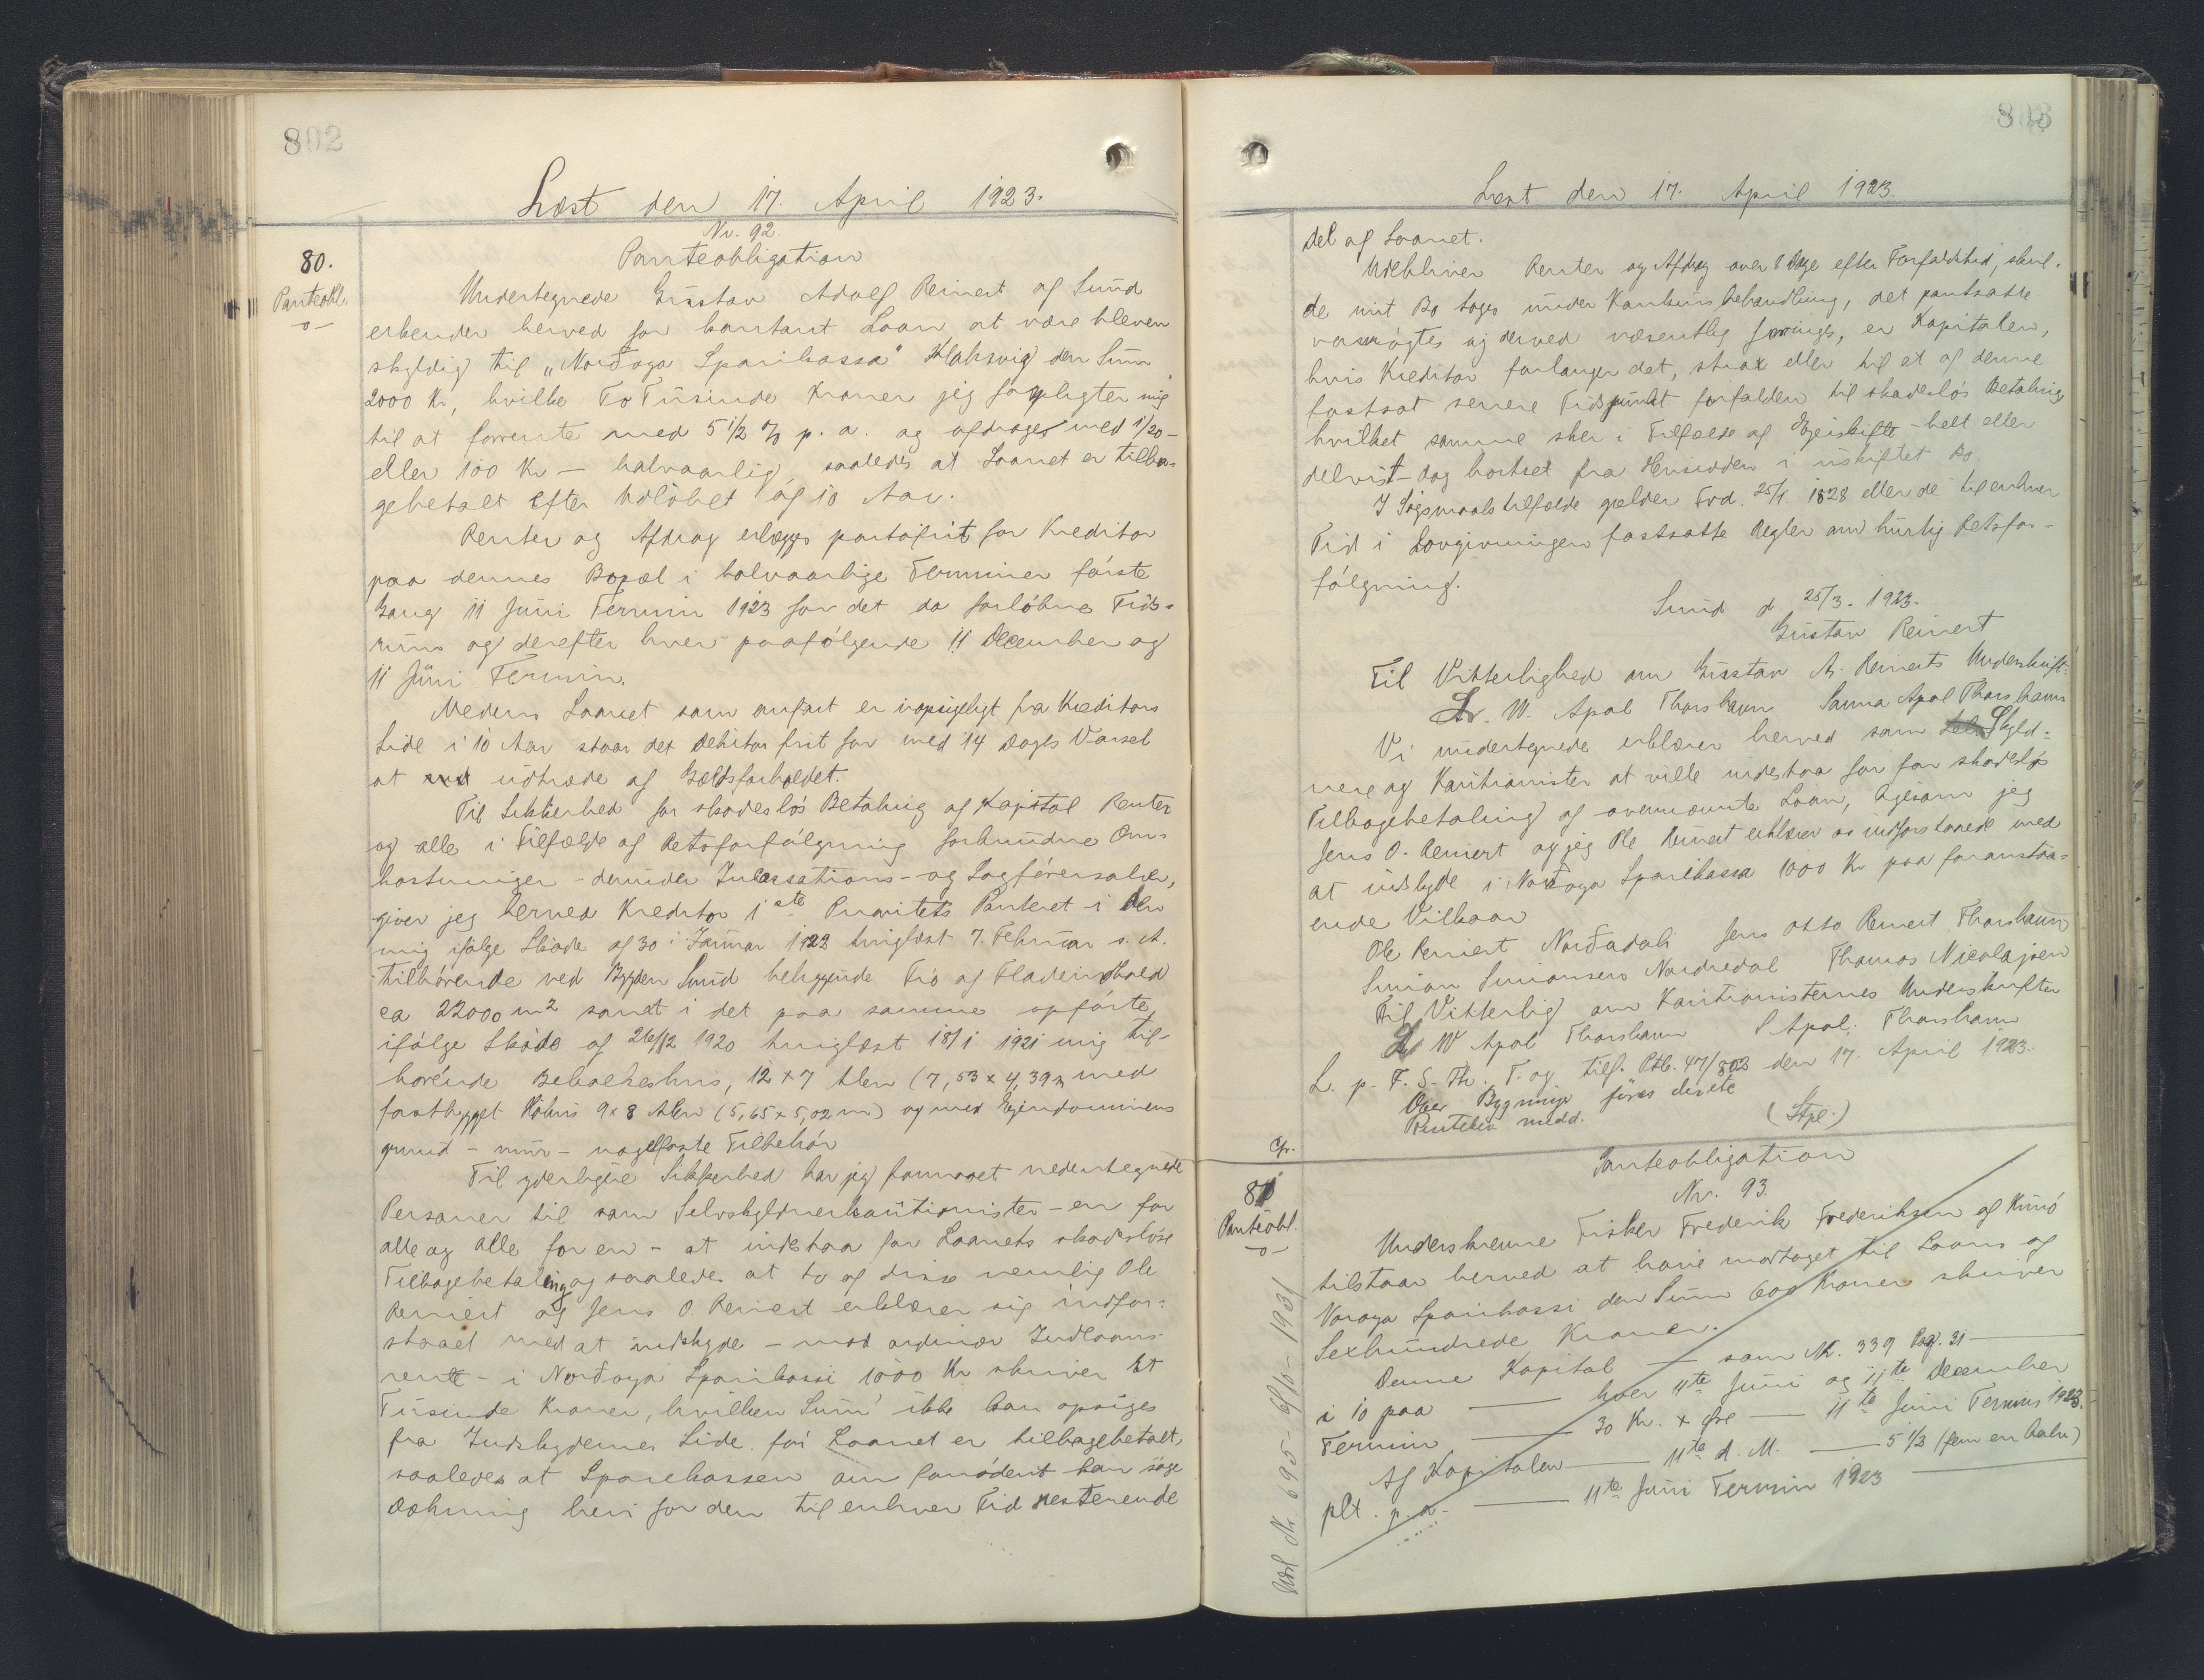 802
Læst den 17. April 1923.
80.
Panteobl.
-o-
Nr. 92.
Panteobligation
Undertegnede Gustav Adolf Reinert af Sund
erkender herved for kontant Laan at være bleven
skyldig til "Norðoya Sparikassa" Klaksvig den Sum
2000 Kr, hvilke To Tusinde Kroner jeg forpligter mig
til at forrente med 5 1/2 % p. a. og afdrages med 1/20 -
eller 100 Kr - halvaarlig, saaledes at Laanet er tilba-
gebetalt efter Udløbet af 10 Aar.
Renter og Afdrag erlægges portofrit for Kreditor
paa dennes Bopæl i halvaarlige Terminer første
Gang 11 Juni Termin 1923 for det da forløbne Tids-
rum og derefter hver paafølgende 11 December og
11 Juni Termin.
Medens Laanet som anført er uopsigeligt fra Kreditors
Side i 10 Aar staar det Debitor frit for med 14 Dages Varsel
at udtræde af Gældsforholdet.
Til Sikkerhed for skadesløs Betaling af Kapital Renter
og alle i Tilfælde af Retsforfølgning forbundne Om-
kostninger - derunder Inkassations- og Sagførersalær,
giver jeg herved Kreditor 1ste Prioritets Panteret i den
mig ifølge Skøde af 30 Januar 1923 tinglæst 7. Februar s. A.
tilhørende ved Bygden Sund beliggende Trø af Fladeindhold
ca 22000 m2 samt i det paa samme opførte
ifølge Skøde af 26/12 1920 tinglæst 18/1 1921 mig til-
hørende Beboelseshus, 12 x 7 Alen (7,53 x 4,39 m med
fastbygget Kohus 9 x 8 Alen (5,65 x 5,02 m) og med Ejendommens
grund - mur - nagelfaste Tilbehør
Til yderligere Sikkerhed har jeg formaaet nedentegnede
Personer til som Selvskyldnerkautionister - en for
alle og alle for en - at indestaa for Laanets skadesløse
Tilbagebetaling og saaledes at to af disse nemlig Ole
Reinert og Jens O. Reinert erklærer sig indfor-
staaet med at indskyde - mod ordinær Indlaans-
rente - i Norðoya Sparikassi 1000 Kr skriver Et
Tusinde Kroner, hvilken Sum ikke kan opsiges
fra Indskydernes Side før Laanet er tilbagebetalt,
saaledes at Sparekassen om fornødent kan søge
Dækning heri for den til enhver Tid resterende
803
Læst den 17. April 1923.
del af Laanet.
Udebliver Renter og Afdrag over 8 Dage efter Forfaldstid, skul-
de mit Bo tages under Konkursbehandling, det pantsatte
vanrøgtes og derved væsentlig forringes, er Kapitalen,
hvis Kreditor forlanger det, strax eller til et af denne
fastsat senere Tidspunkt forfalden til skadesløs Betaling
hvilket samme sker i Tilfælde af Ejerskifte - helt eller
delvist - dog bortset fra Hensidden i uskiftet Bo.
I Søgsmaalstilfælde gælder Frd. 25/1 1828 eller de til enhver
Tid i Lovgivningen fastsatte Regler om hurtig Retsfor-
følgning.
Sund d. 25/3. 1923.
Gustav Reinert
Til Vitterlighed om Gustav A. Reinerts Underskrift:
W. Apol Thorshavn Sanna Apol Thorshavn
Vi undertegnede erklærer herved som Skyld-
nere og Kautionister at ville indestaa for for skadesløs
Tilbagebetaling af ovennævnte Laan, ligesom jeg
Jens O. Reinert og jeg Ole Reinert erklærer os indforstaaede med
at indskyde i Norðoya Sparikassa 1000 Kr paa foranstaa-
ende Vilkaar
Ole Reinert Norðadali Jens Otto Reinert Thorshavn
Simon Simonsen Nordredal Thomas Nicolajsen
Til Vitterlig om Kautionisternes Underskrifter
W Apol Thorshavn S Apol. Thorshavn
L. p. F. S. Th. T. og tilf. Ptb. 47/802 den 17. April 1923.
Over Bygninger føres disse
medd. (Stpl.)
Cfr.
81
Panteobl.
-o-
Panteobligation
Nr. 93.
Underskrevne Fisker Frederik Frederiksen af Kunø
tilstaar herved at have modtaget til Laans af
Noroya Sparikassi den Sum 600 Kroner skriver
Sexhundrede Kroner.
Denne Kapital — som Nr. 339 Pag. 31 —
i 10 paa — hver 11te Juni og 11te December
Termin — 30 Kr. x Øre — 11te Juni Termin 1923.
Af Kapitalen — 11te d. M. — 5 1/2 (fem en halv)
pCt. p. a. — 11te Juni Termin 1923 —
Udsl. Nr. 695 - 6/10 - 1931